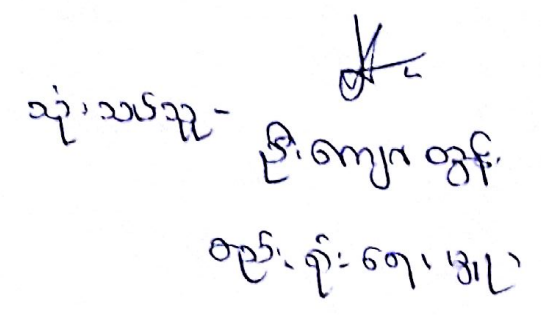 သုံးသပ်သူ -
ဦးကျော်ထွန်း
စည်းရုံးရေးမှူး